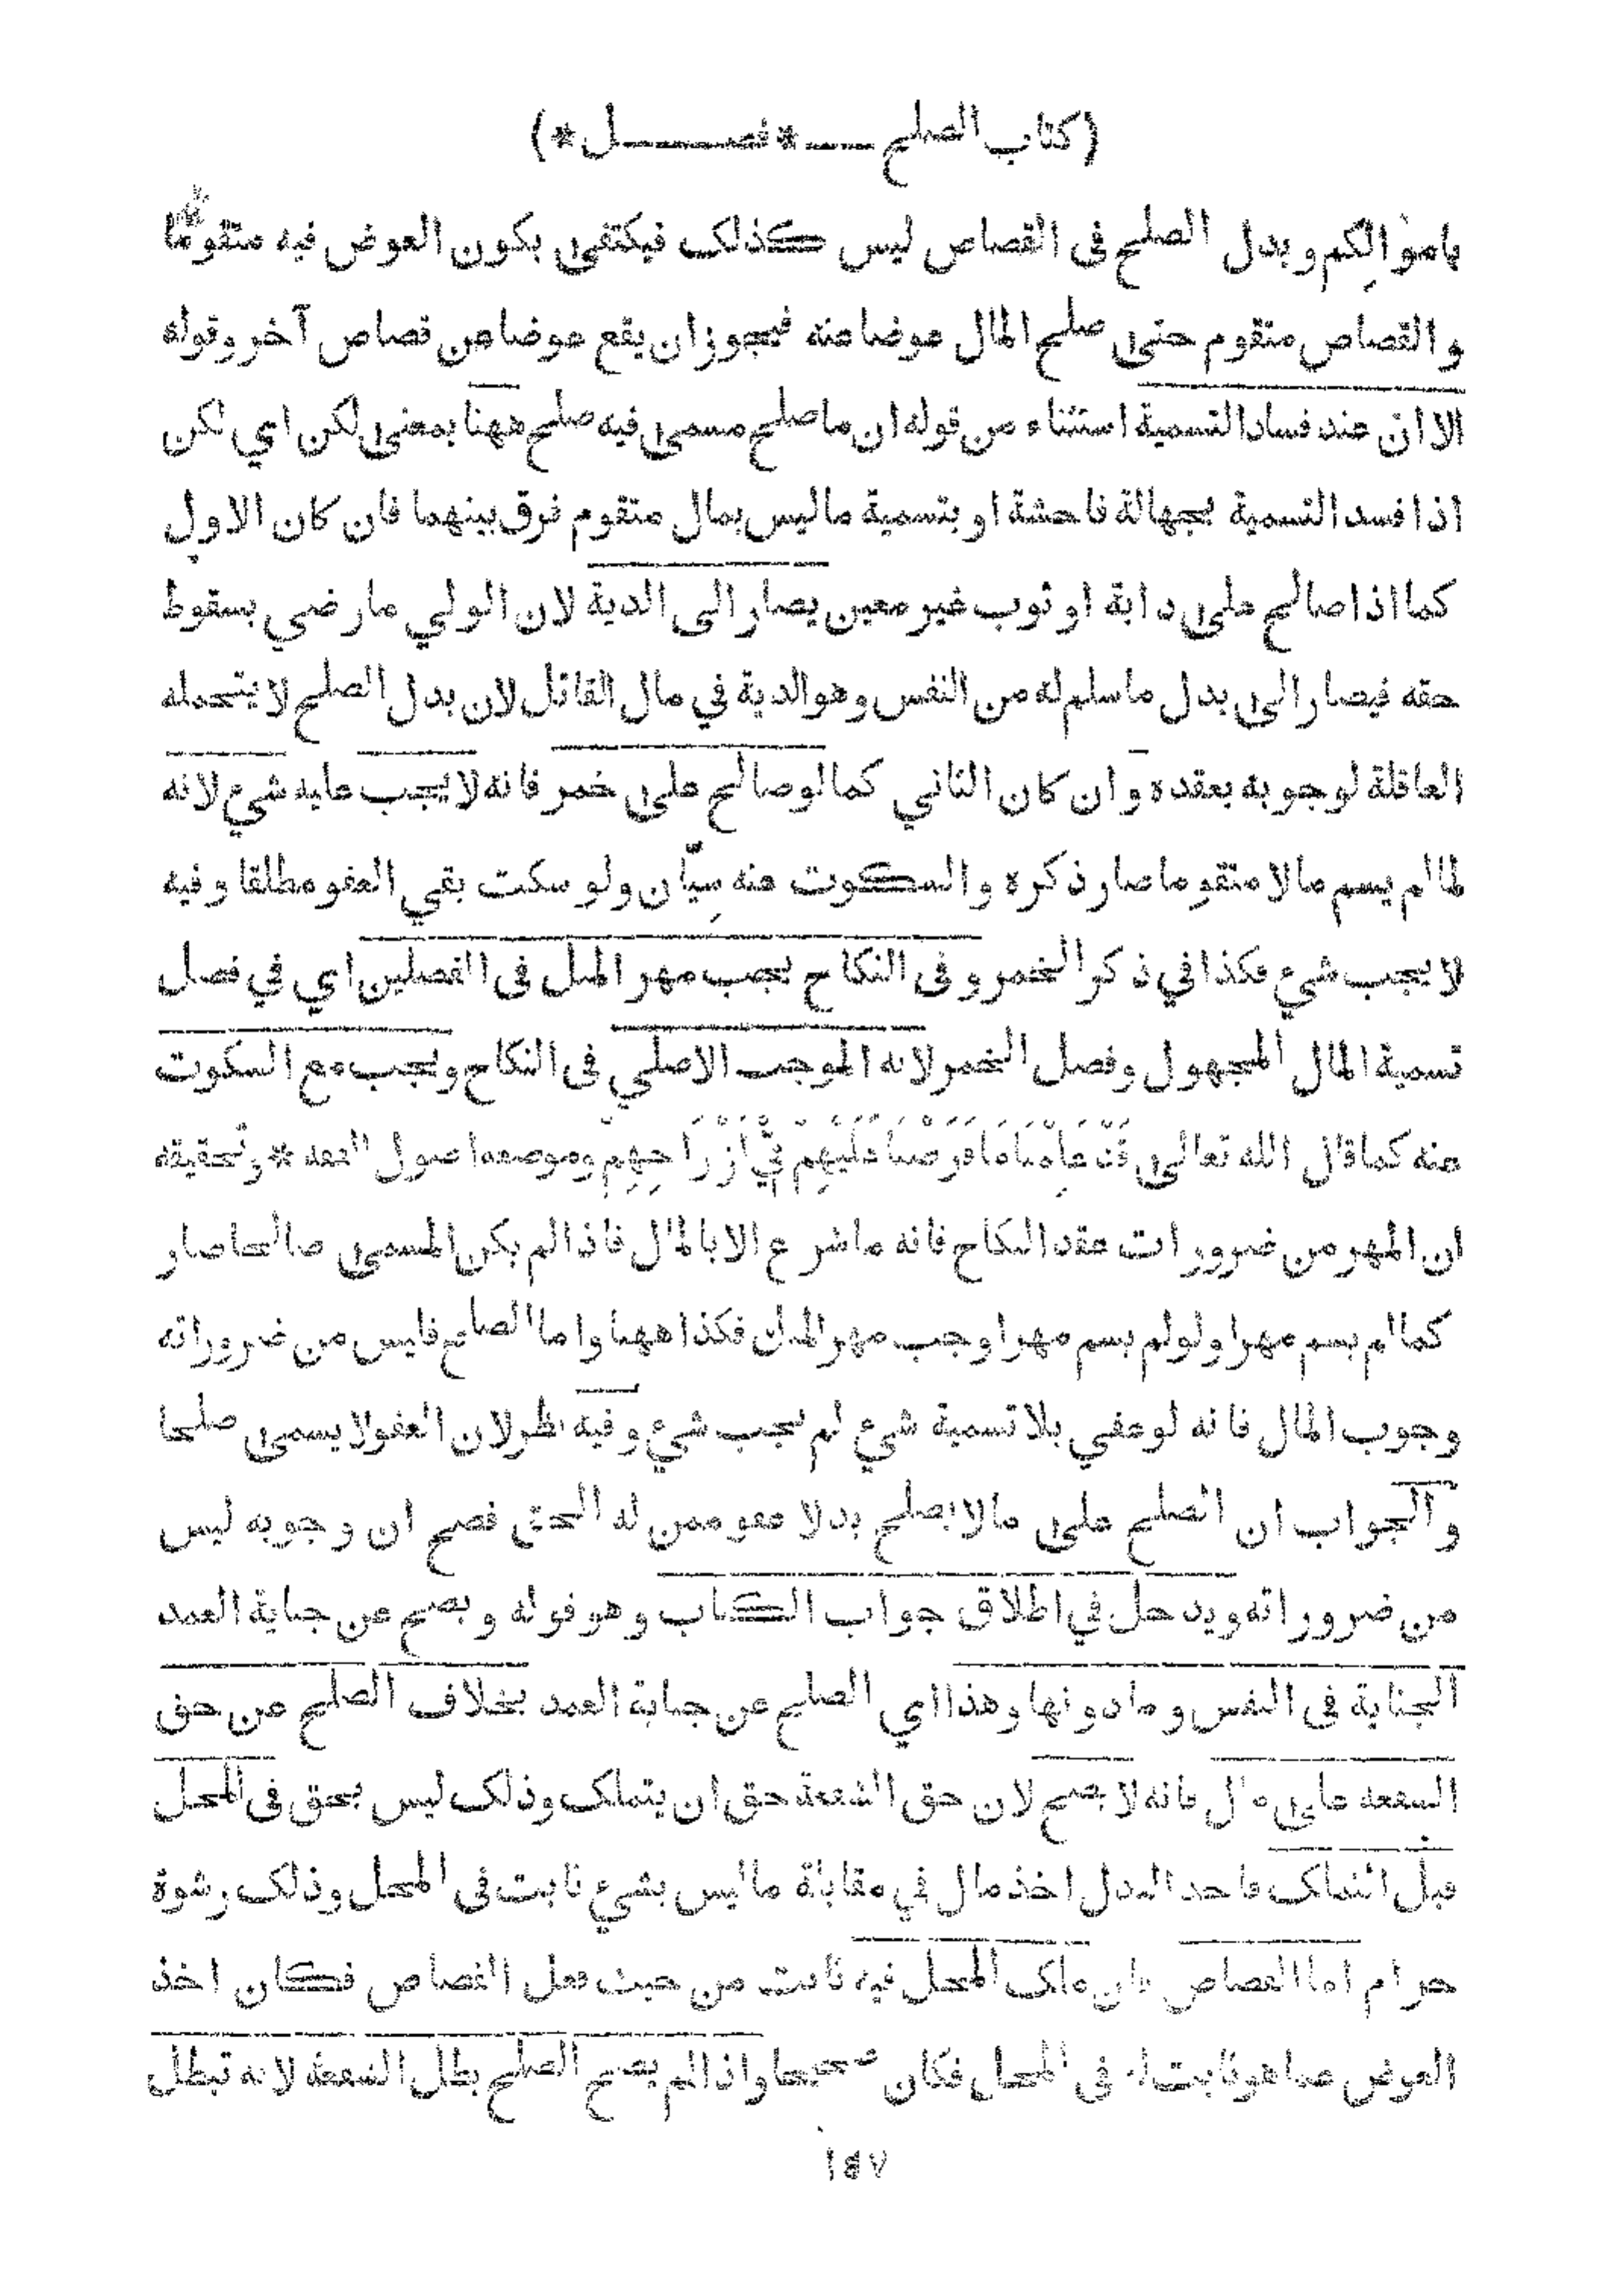 (كتاب الصلح — * فصل *)
باموالِكم وبدل الصلح فى القصاص ليس كذلك فيكتفى بكون العوض فيه متقوما
والقصاص متقوم حتى صلح المال عوضا عنه فيجوز ان يقع عوضا عن قصاص آخر وقوله
الا ان عند فساد التسمية استثناء من قوله ان ما صلح مسمى فيه صلح ههنا بمعنى لكن اي لكن
اذا فسد التسمية بجهالة فاحشة او بتسمية ما ليس بمال متقوم فرق بينهما فان كان الاول
كما اذا صالح على دابة او ثوب غير معين يصار الى الدية لان الولي ما رضي بسقوط
حقه فيصار الى بدل ما سلم له من النفس وهو الدية في مال القاتل لان بدل الصلح لا يتحمله
العاقلة لوجوبه بعقده وان كان الثاني كما لو صالح على خمر فانه لا يجب عليه شيء لانه
لما لم يسم مالا متقوما صار ذكره والسكوت عنه سِيّان ولو سكت بقي العفو مطلقا وفيه
لا يجب شيء فكذا في ذكر الخمر وفى النكاح يجب مهر المثل فى الفصلين اي في فصل
تسمية المال المجهول وفصل الخمر لانه الموجب الاصلي فى النكاح ويجب مع السكوت
عنه كما قال الله تعالى قَدْ عَلِمْنَا مَا فَرَضْنَا عَلَيْهِمْ فِيْ أَزْوَاجِهِمْ وموضعه اصول الفقه * وتحقيقه
ان المهر من ضرورات عقد النكاح فانه ما شرع الا بالمال فاذا لم يكن المسمى صالحا صار
كما لم يسم مهرا ولو لم يسم مهرا وجب مهر المثل فكذا ههنا واما الصلح فليس من ضروراته
وجوب المال فانه لو عفي بلا تسمية شيء لم يجب شيء وفيه نظر لان العفو لا يسمى صلحا
والجواب ان الصلح على ما لا يصلح بدلا عفو ممن له الحق فصح ان وجوبه ليس
من ضروراته ويدخل في اطلاق جواب الكتاب وهو قوله ويصح عن جناية العمد
الجناية فى النفس وما دونها وهذا اي الصلح عن جناية العمد بخلاف الصلح عن حق
الشفعة على مال فانه لا يصح لان حق الشفعة حق ان يتملك وذلك ليس بحق فى المحل
قبل التملك فاخذ البدل اخذ مال في مقابلة ما ليس بشيء ثابت فى المحل وذلك رشوة
حرام اما القصاص فان ملك المحل فيه ثابت من حيث فعل القصاص فكان اخذ
العوض عما هو ثابت له فى المحل فكان صحيحا واذا لم يصح الصلح بطل الشفعة لانه تبطل